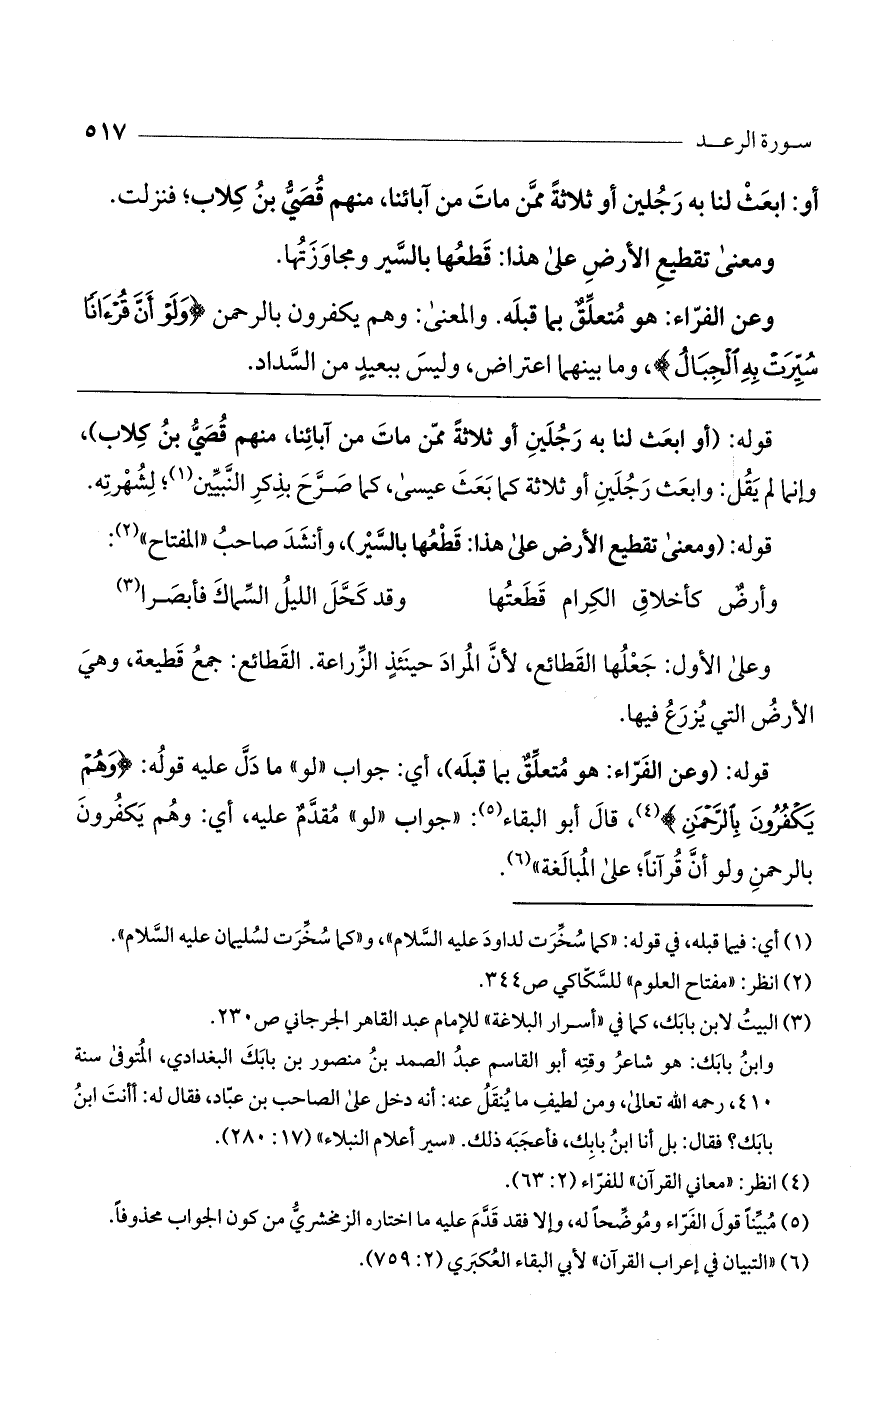 سورة الرعد ٥١٧
أو: ابعَثْ لنا به رَجُلين أو ثلاثةً ممَّن ماتَ من آبائنا، منهم قُصَيُّ بنُ كِلاب؛ فنزلت.
ومعنىٰ تقطيعِ الأرضِ علىٰ هذا: قَطعُها بالسَّير ومجاوَزَتُها.
وعن الفرّاء: هو مُتعلِّقٌ بما قبلَه. والمعنىٰ: وهم يكفرون بالرحمن ﴿وَلَوْ أَنَّ قُرْءَانًا
سُيِّرَتْ بِهِ ٱلْجِبَالُ﴾، وما بينهما اعتراض، وليسَ ببعيدٍ من السَّداد.
قوله: (أو ابعَث لنا به رَجُلَينِ أو ثلاثةً ممّن ماتَ من آبائِنا، منهم قُصَيُّ بنُ كِلاب)،
وإنما لم يَقُل: وابعَث رَجُلَينِ أو ثلاثة كما بَعَثَ عيسىٰ، كما صَرَّحَ بذِكرِ النَّبيِّين(١)؛ لِشُهْرتِه.
قوله: (ومعنىٰ تقطيع الأرض علىٰ هذا: قَطْعُها بالسَّيْر)، وأنشَدَ صاحبُ «المفتاح»(٢):
وأرضٌ كأخلاقِ الكِرام قَطَعتُها وقد كَحَّلَ الليلُ السِّماكَ فأبصَرا(٣)
وعلىٰ الأول: جَعْلُها القَطائع، لأنَّ المُرادَ حينَئذٍ الزِّراعة. القَطائع: جمعُ قَطيعة، وهيَ
الأرضُ التي يُزرَعُ فيها.
قوله: (وعن الفَرّاء: هو مُتعلِّقٌ بما قبلَه)، أي: جواب «لو» ما دَلَّ عليه قولُه: ﴿وَهُمْ
يَكْفُرُونَ بِٱلرَّحْمَٰنِ﴾(٤)، قالَ أبو البقاء(٥): «جواب «لو» مُقدَّمٌ عليه، أي: وهُم يَكفُرونَ
بالرحمنِ ولو أنَّ قُرآناً؛ علىٰ المُبالَغة»(٦).
(١) أي: فيما قبله، في قوله: «كما سُخِّرَت لداودَ عليه السَّلام»، و«كما سُخِّرَت لسُليمان عليه السَّلام».
(٢) انظر: «مفتاح العلوم» للسَّكّاكي ص٣٤٤.
(٣) البيتُ لابن بابَك، كما في «أسرار البلاغة» للإمام عبد القاهر الجرجاني ص٢٣٠.
وابنُ بابَك: هو شاعرُ وقتِه أبو القاسم عبدُ الصمد بنُ منصور بن بابَكَ البغدادي، المُتوفىٰ سنة
٤١٠، رحمه الله تعالىٰ، ومن لطيفِ ما يُنقَلُ عنه: أنه دخل علىٰ الصاحب بن عبّاد، فقال له: أأنتَ ابنُ
بابَك؟ فقال: بل أنا ابنُ بابِك، فأعجَبَه ذلك. «سير أعلام النبلاء» (١٧: ٢٨٠).
(٤) انظر: «معاني القرآن» للفرّاء (٢: ٦٣).
(٥) مُبيِّناً قولَ الفَرّاء ومُوضِّحاً له، وإلا فقد قَدَّمَ عليه ما اختاره الزمخشريُّ من كون الجواب محذوفاً.
(٦) «التبيان في إعراب القرآن» لأبي البقاء العُكبَري (٢: ٧٥٩).